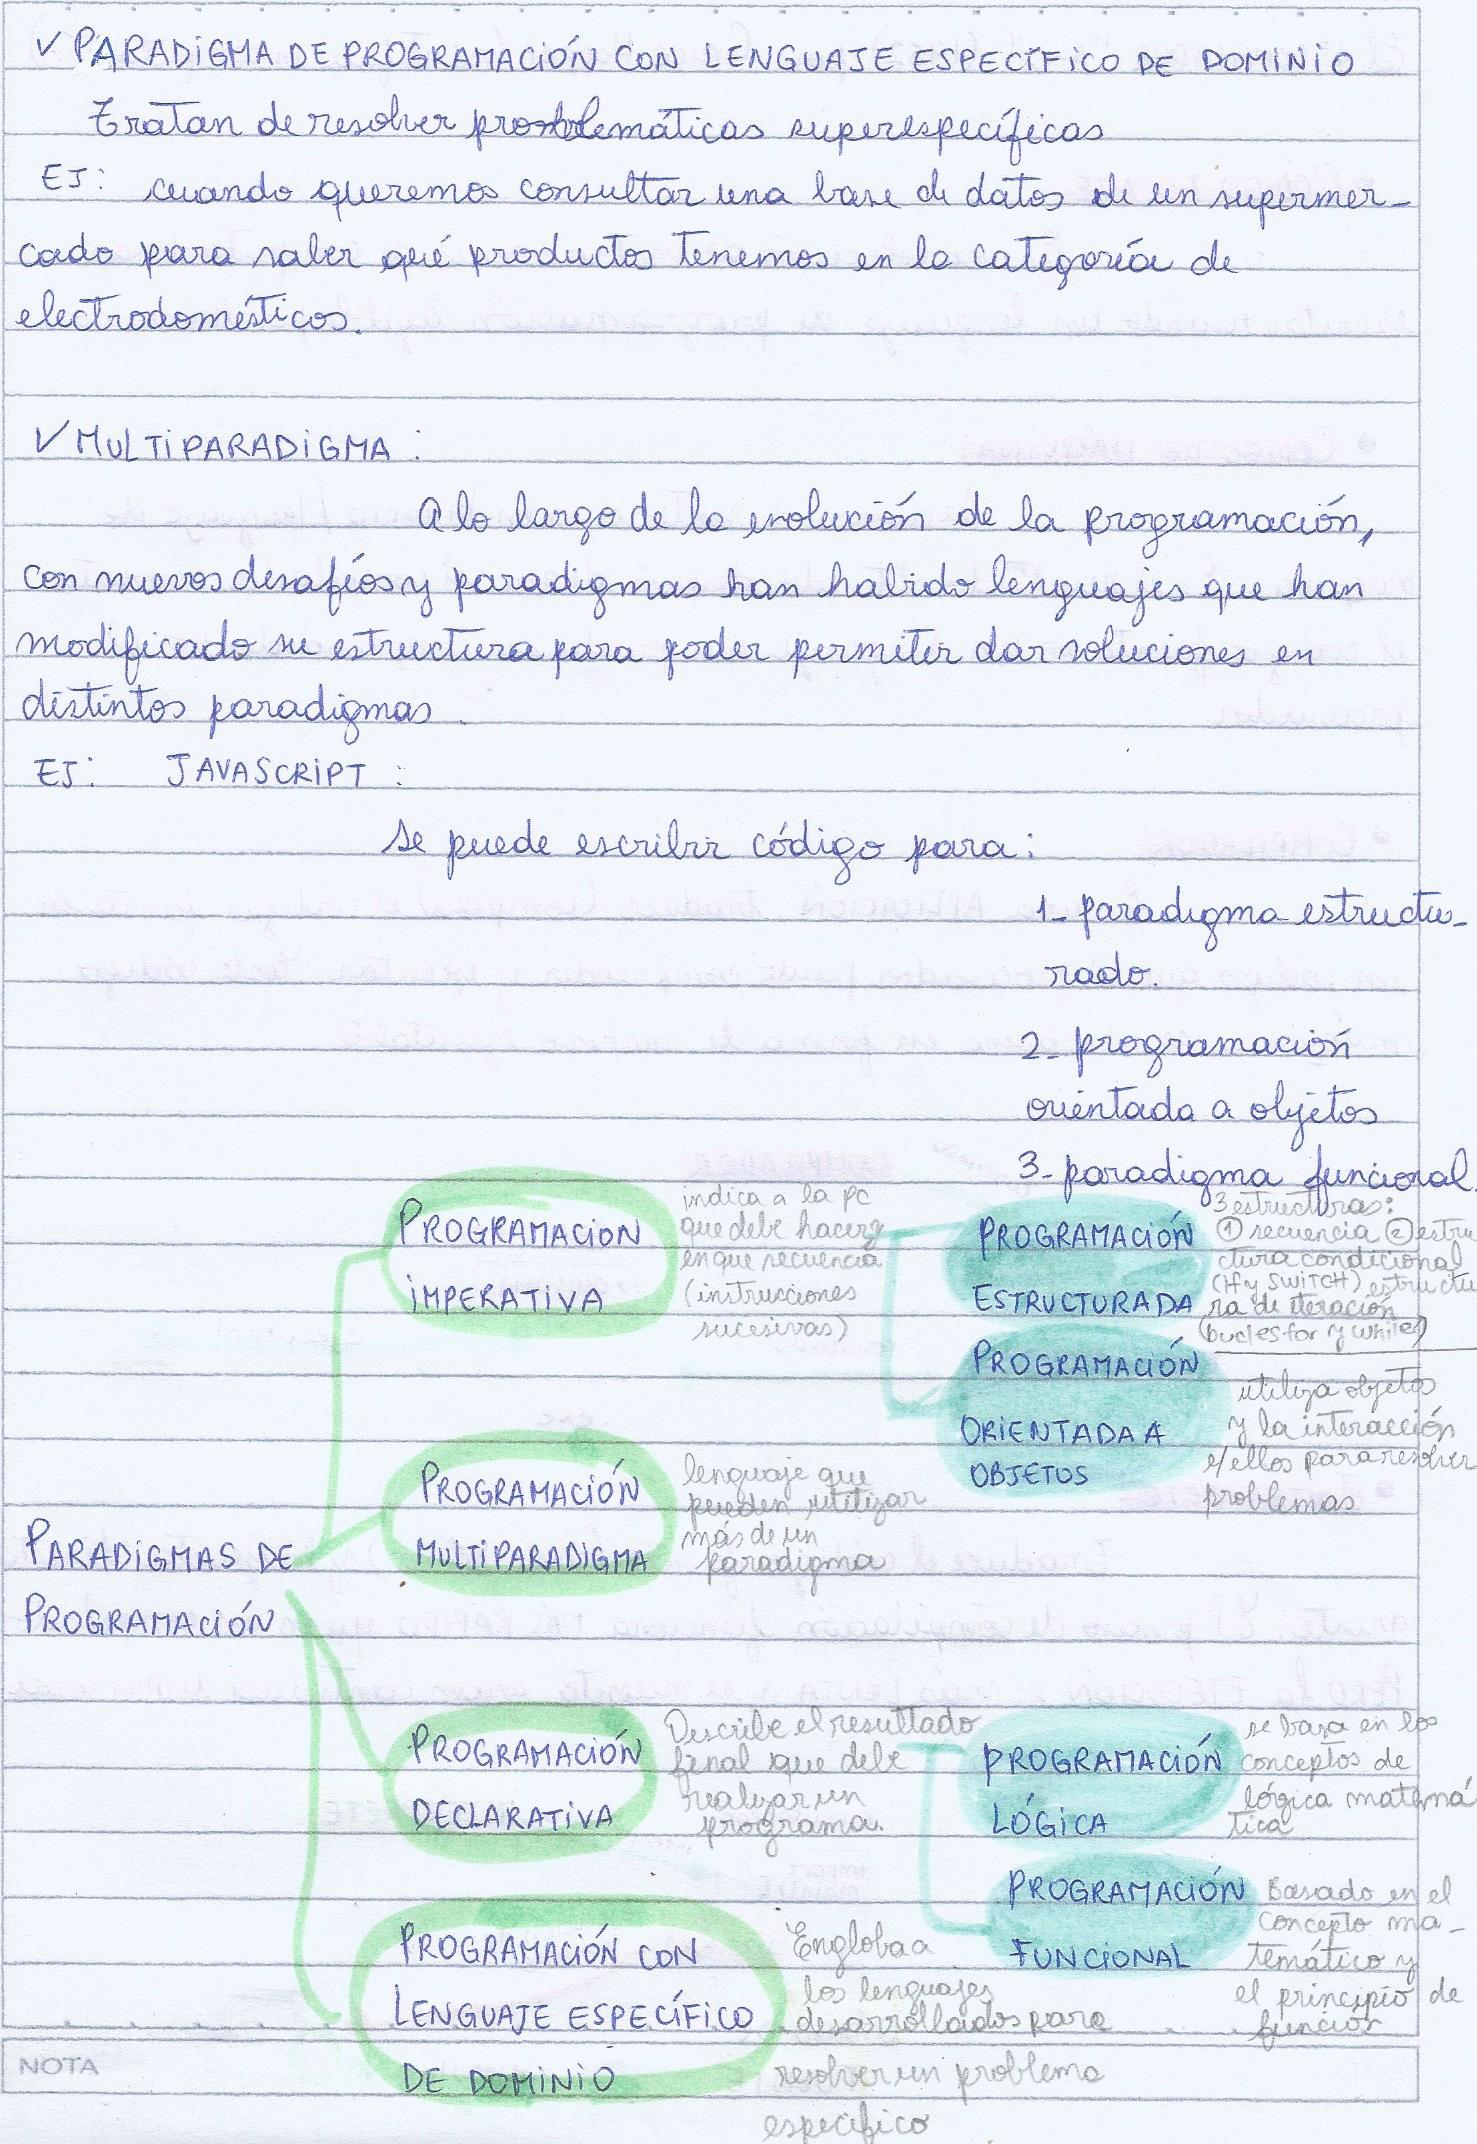 ✓ PARADIGMA DE PROGRAMACIÓN CON LENGUAJE ESPECÍFICO DE DOMINIO
Tratan de resolver problemáticas superespecíficas
EJ: cuando queremos consultar una base de datos de un supermer-
cado para saber qué productos tenemos en la categoría de
electrodomésticos.
✓ MULTIPARADIGMA :
A lo largo de la evolución de la programación,
con nuevos desafíos y paradigmas han habido lenguajes que han
modificado su estructura para poder permitir dar soluciones en
distintos paradigmas.
EJ: JAVASCRIPT :
Se puede escribir código para:
1- paradigma estructu-
rado.
2- programación
orientada a objetos
3- paradigma funcional.
PARADIGMAS DE
PROGRAMACIÓN
PROGRAMACIÓN
IMPERATIVA
indica a la pc
que debe hacer y
en que secuencia
(instrucciones
sucesivas)
PROGRAMACIÓN
ESTRUCTURADA
3 estructuras:
① secuencia ② estru
ctura condicional
(if y SWITCH) estructu
ra de iteración
(bucles for y while)
PROGRAMACIÓN
ORIENTADA A
OBJETOS
utiliza objetos
y la interacción
e/ellos para resolver
problemas
PROGRAMACIÓN
MULTIPARADIGMA
lenguaje que
pueden utilizar
más de un
paradigma
PROGRAMACIÓN
DECLARATIVA
Describe el resultado
final que debe
realizar un
programa.
PROGRAMACIÓN
LÓGICA
se basa en los
conceptos de
lógica matemá
tica
PROGRAMACIÓN
FUNCIONAL
Basado en el
concepto ma-
temático y
el principio de
función
PROGRAMACIÓN CON
LENGUAJE ESPECÍFICO
DE DOMINIO
Engloba a
los lenguajes
desarrollados para
resolver un problema
específico
NOTA